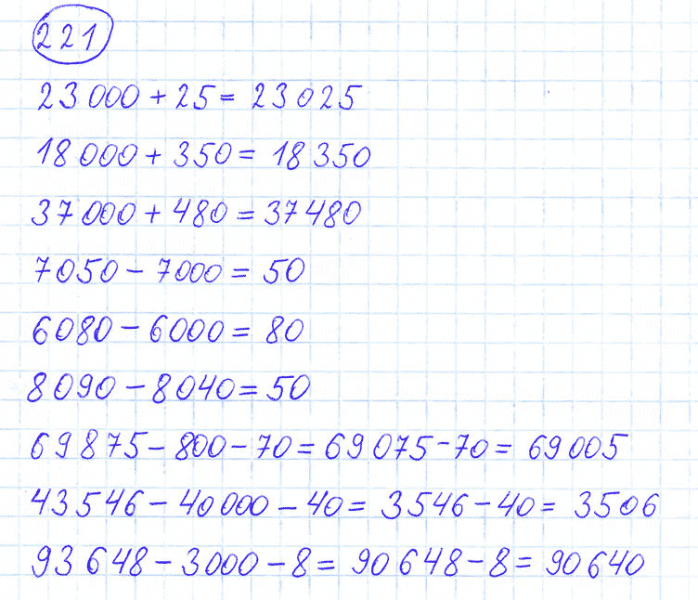 221
23 000 + 25 = 23 025
18 000 + 350 = 18 350
37 000 + 480 = 37 480
7050 - 7000 = 50
6080 - 6000 = 80
8090 - 8040 = 50
69 875 - 800 - 70 = 69 075 - 70 = 69 005
43 546 - 40 000 - 40 = 3546 - 40 = 3506
93 648 - 3000 - 8 = 90 648 - 8 = 90 640